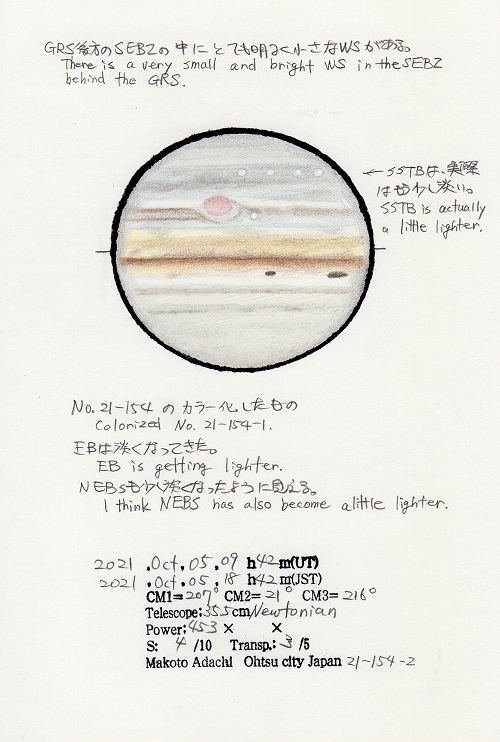 GRS後方のSEBZの中にとても明るく小さなWSがある。
There is a very small and bright WS in the SEBZ
behind the GRS.
← SSTBは、実際
はもう少し淡い。
SSTB is actually
a little lighter.
No. 21-154 のカラー化したもの
Colonized No. 21-154-1.
EBは淡くなってきた。
EB is getting lighter.
NEBsも少し淡くなったように見える。
I think NEBS has also become a little lighter.
2021 .Oct. 05. 09 h42m(UT)
2021 .Oct. 05. 18 h42m(JST)
CM1=207° CM2=21° CM3=216°
Telescope:355cm Newtonian
Power:453× ×
S: 4 /10 Transp.:3 /5
Makoto Adachi Ohtsu city Japan 21-154-2